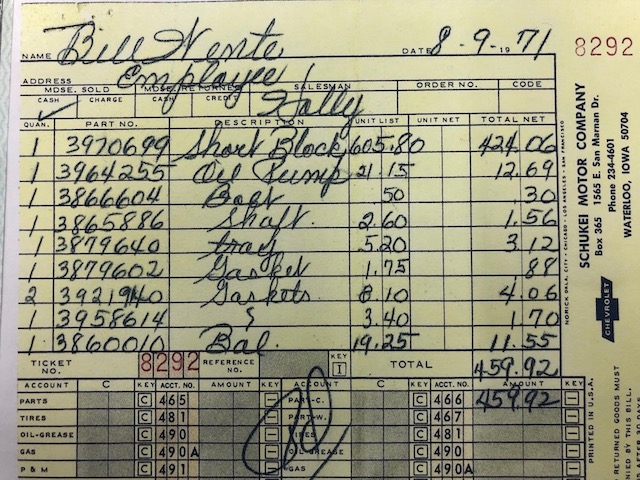 NAME Bill Wente DATE 8-9-1971 8292
ADDRESS Employee
MDSE. SOLD MDSE. RETURNED SALESMAN ORDER NO. CODE
CASH ✓ CHARGE CASH CREDIT
QUAN. PART NO. DESCRIPTION UNIT LIST UNIT NET TOTAL NET
1 3970699 Short Block 605.80 424.06
1 3964255 Oil Pump 21.15 12.69
1 3866604 .50 .30
1 3865886 Shaft 2.60 1.56
1 3879640 tray 5.20 3.12
1 3879602 Gasket 1.75 .88
2 3921940 Gaskets 8.10 4.06
1 3958614 3.40 1.70
1 3860010 Bal. 19.25 11.55
TICKET NO. 8292 REFERENCE NO. KEY I TOTAL 459.92
ACCOUNT C KEY ACCT. NO. AMOUNT KEY ACCOUNT C KEY ACCT. NO. AMOUNT KEY
PARTS C 465 — PARTS-C. C 466 459.92 —
TIRES C 481 — PART-W. C 467 —
OIL-GREASE C 490 — TIRES C 481 —
GAS C 490A — OIL-GREASE C 490 —
P & M C 491 — GAS C 490A —
NORICK OKLA. CITY - CHICAGO - LOS ANGELES - SAN FRANCISCO
SCHUKEI MOTOR COMPANY
Box 365 1565 E. San Marnan Dr.
Phone 234-4601
WATERLOO, IOWA 50704
CHEVROLET
PRINTED IN U.S.A.
RETURNED GOODS MUST
NIED BY THIS BILL.
AFTER 30 DAYS